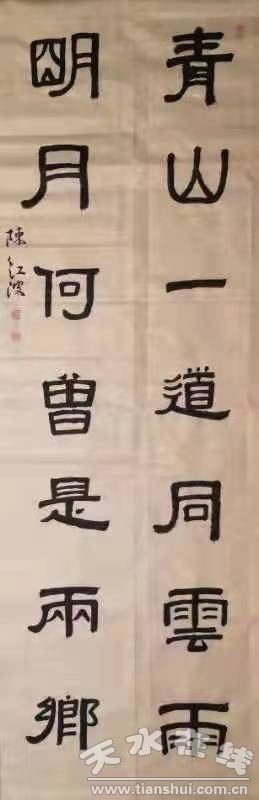 青山一道同雲雨
明月何曾是兩鄉
陳江波
天水在线
www.tianshui.com.cn